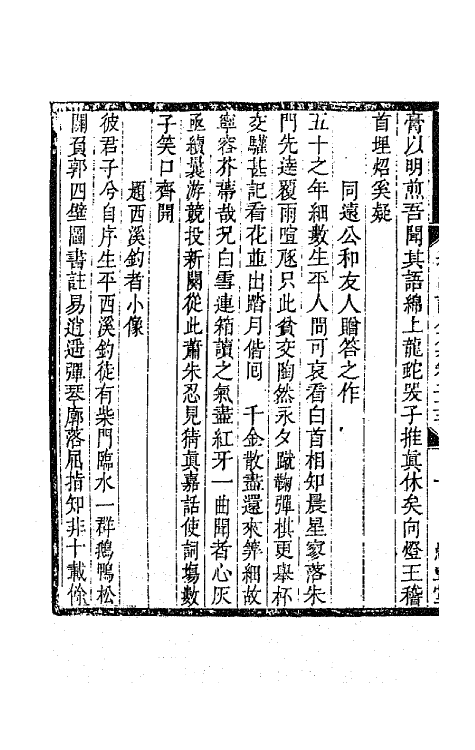 膏以明煎吾聞其語綿上龍蛇哭子推真休矣向燈王稽
首埋炤奚疑
同遠公和友人贈答之作
五十之年細數生平人間可哀看白首相知晨星寥落朱
門先達覆雨喧豗只此貧交陶然永夕蹴鞠彈棋更舉杯
交驩甚記看花並出踏月偕回　千金散盡還來筭細故
寧容芥蔕哉況白雪連箱讀之氣盡紅牙一曲聞者心灰
亟續曩游競投新闋從此蕭朱忍見猜真嘉話使詞場數
子笑口齊開
題西溪釣者小像
彼君子兮自序生平西溪釣徒有柴門臨水一群鵝鴨松
關負郭四壁圖書註易逍遥彈琴廓落屈指知非十載餘